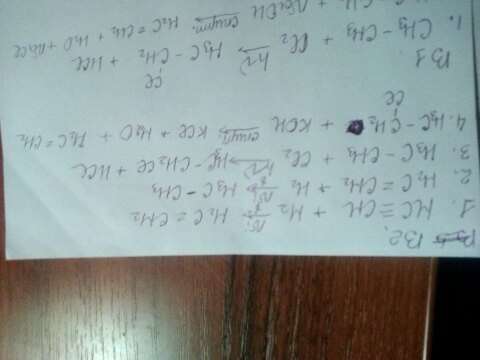 B2.
1. HC ≡ CH + H₂ →Ni H₂C = CH₂
2. H₂C = CH₂ + H₂ →Ni H₃C – CH₃
3. H₃C – CH₃ + Cl₂ →hν H₃C – CH₂Cl + HCl
4. H₃C – CH₂ + KOH →спирт KCl + H₂O + H₂C = CH₂
Cl
B1
Cl
1. CH₃ – CH₃ + Cl₂ →hν H₃C – CH₂ + HCl
+ NaOH спирт. H₂C = CH₂ + H₂O + NaCl